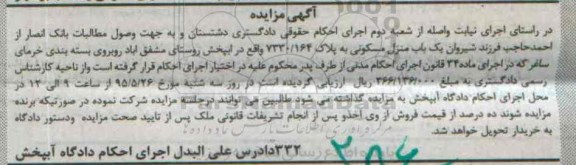 آگهی مزایده
در راستای اجرای نیابت واصله از شعبه دوم اجرای احکام حقوقی دادگستری دشتستان و به جهت وصول مطالبات بانک انصار از
احمدحاجب فرزند شیروان یک باب منزل مسکونی به پلاک ۷۳۳۰/۱۶۴ واقع در آبپخش روستای مشفق اباد روبروی بسته بندی خرمای
سافر که در اجرای ماده ۳۴ قانون اجرای احکام مدنی از طرف پدر محکوم علیه در اختیار اجرای احکام قرار گرفته است واز ناحیه کارشناس
رسمی دادگستری به مبلغ ۳۶۶/۱۳۶/۰۰۰ ریال ارزیابی گردیده است در روز سه شنبه مورخ ۹۵/۵/۲۶ از ساعت ۹ الی ۱۲ در
محل اجرای احکام دادگاه آبپخش به مزایده گذاشته می شود طالبین می توانند درجلسه مزایده شرکت نموده در صورتیکه برنده
مزایده شوند ده درصد از قیمت فروش از وی اخذو پس از انجام تشریفات قانونی ملک پس از تایید صحت مزایده ودستور دادگاه
به خریدار تحویل خواهد شد.
۳۳۲دادرس علی البدل اجرای احکام دادگاه آبپخش